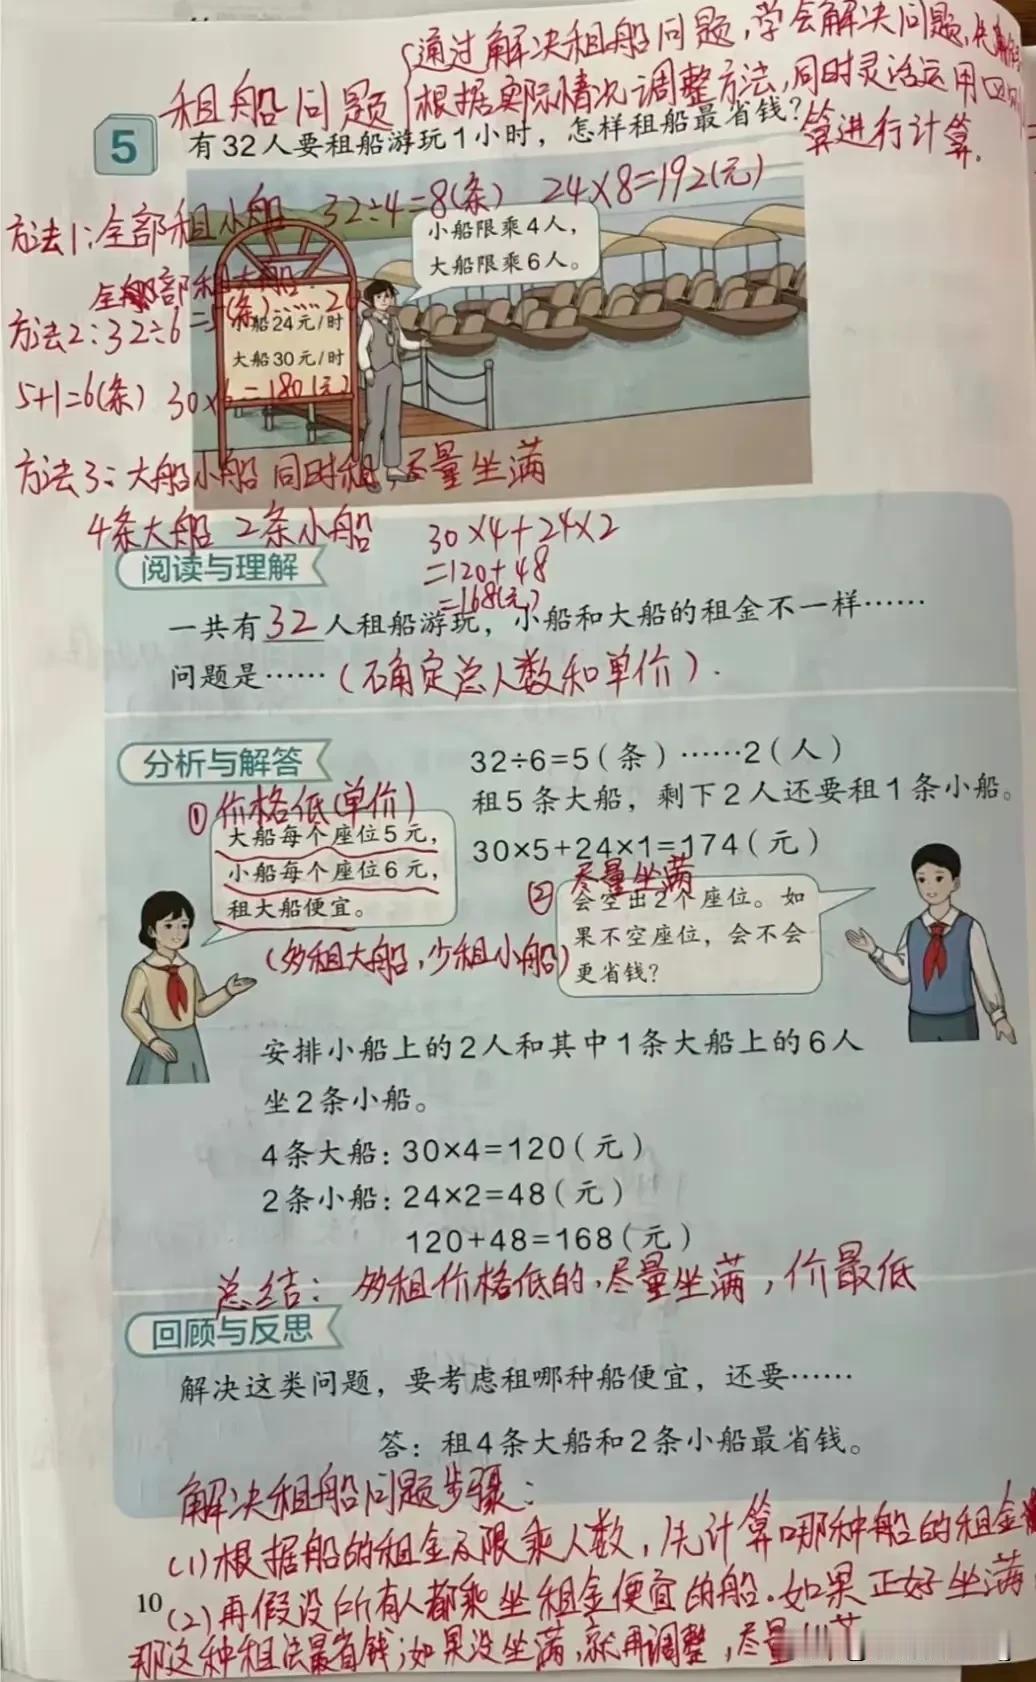 通过解决租船问题，学会解决问题，先
租船问题 根据实际情况调整方法，同时灵活运用四则
算进行计算.
5 有32人要租船游玩1小时，怎样租船最省钱？
方法1：全部租小船 32÷4=8(条) 24×8=192(元)
小船限乘4人，
大船限乘6人。
全部租大船
方法2：32÷6=5(条)……2
小船24元/时
大船30元/时
5+1=6(条) 30×6=180(元)
方法3：大船小船同时租，尽量坐满
4条大船 2条小船 30×4+24×2
=120+48
=168(元)
阅读与理解
一共有32人租船游玩，小船和大船的租金不一样……
问题是……(确定总人数和单价).
分析与解答
32÷6=5（条）……2（人）
租5条大船，剩下2人还要租1条小船。
30×5+24×1=174（元）
①价格低(单价)
大船每个座位5元，
小船每个座位6元，
租大船便宜。
(多租大船，少租小船)
②尽量坐满
会空出2个座位。如
果不空座位，会不会
更省钱？
安排小船上的2人和其中1条大船上的6人
坐2条小船。
4条大船：30×4=120（元）
2条小船：24×2=48（元）
120+48=168（元）
总结：多租价格低的，尽量坐满，价最低
回顾与反思
解决这类问题，要考虑租哪种船便宜，还要……
答：租4条大船和2条小船最省钱。
解决租船问题步骤：
(1)根据船的租金及限乘人数，先计算哪种船的租金
10
(2)再假设所有人都乘坐租金便宜的船.如果正好坐满
那这种租法最省钱；如果没坐满，就再调整，尽量